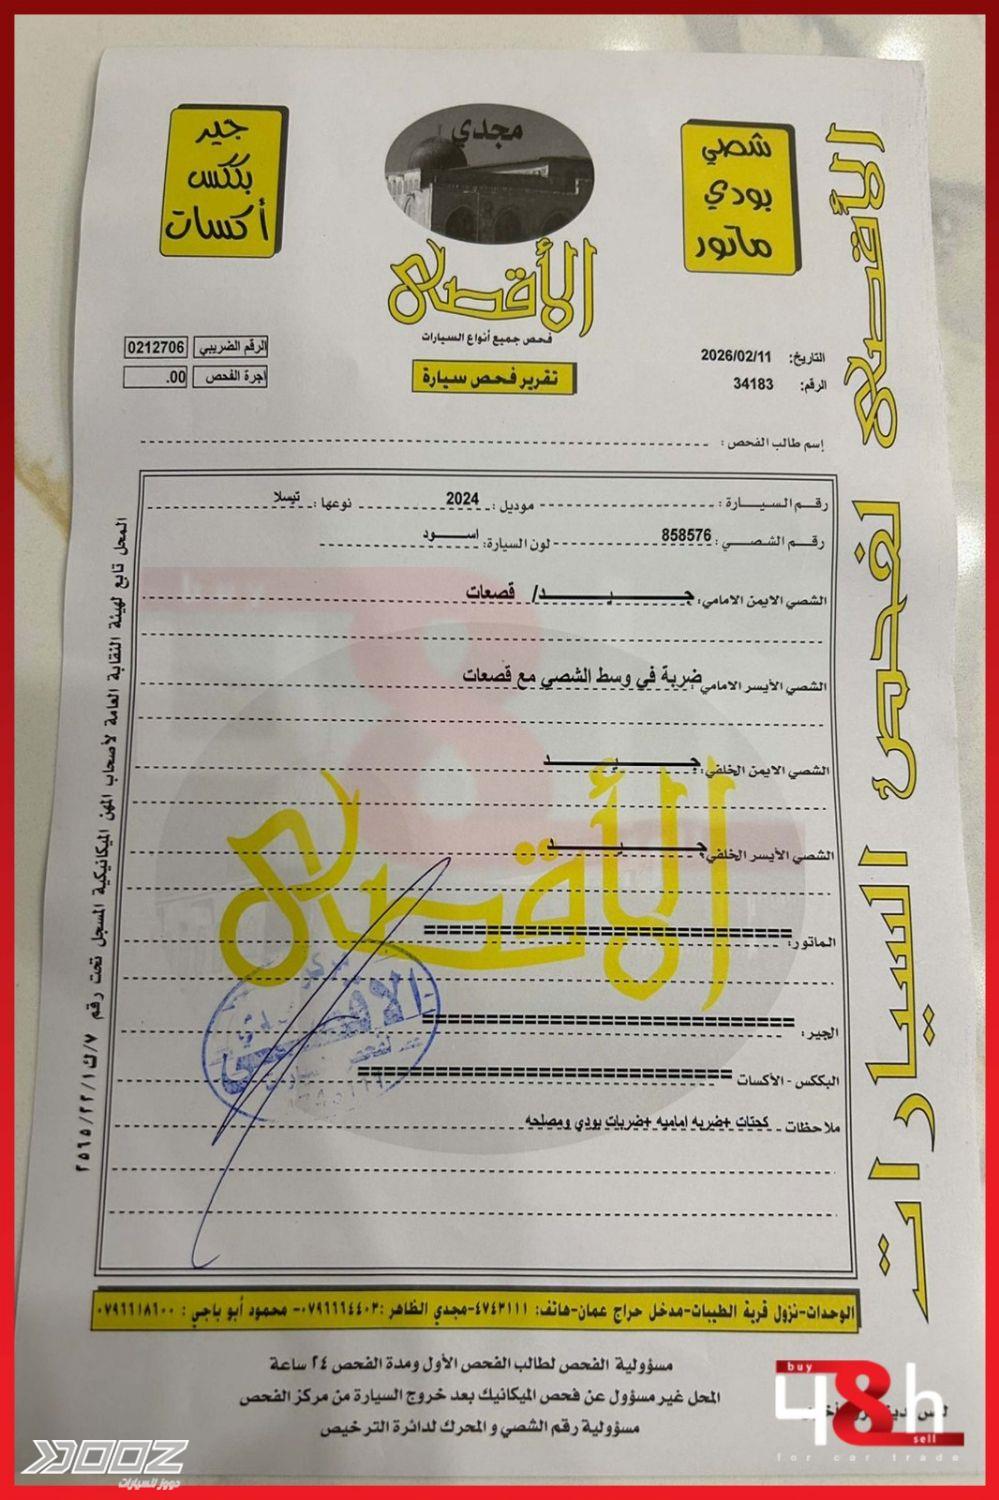 مجدي
شصي
بودي
ماتور
جير
بككس
أكسات
الأقصى
فحص جميع أنواع السيارات
تقرير فحص سيارة
التاريخ: 2026/02/11
الرقم: 34183
الرقم الضريبي 0212706
اجرة الفحص 00.
إسم طالب الفحص :
رقم السيارة : موديل : 2024 نوعها : تيسلا
رقم الشصي : 858576 لون السيارة: اسود
الشصي الايمن الامامي: جيد/ قصعات
الشصي الأيسر الامامي: ضربة في وسط الشصي مع قصعات
الشصي الايمن الخلفي: جيد
الشصي الأيسر الخلفي: جيد
الأقصى
الماتور: ====================
الجير: ====================
البككس - الأكسات ====================
ملاحظات كجتات +ضربه اماميه +ضربات بودي ومصلحه
الوحدات-نزول قرية الطيبات-مدخل حراج عمان-هاتف: ٤٧٤٣١١١-مجدي الظاهر :٠٧٩٦٦٦٤٤٠٣- محمود أبو باجي : ٠٧٩٦٦١٨٦٠٠
مسؤولية الفحص لطالب الفحص الأول ومدة الفحص ٢٤ ساعة
المحل غير مسؤول عن فحص الميكانيك بعد خروج السيارة من مركز الفحص
مسؤولية رقم الشصي و المحرك لدائرة الترخيص
المحل تابع لهيئة النقابة العامة لأصحاب المهن الميكانيكية المسجل تحت رقم ٧/ك/٢٢/١/٢٥٦٥
الأقصى لفحص السيارات
buy
48h
sell
for car trade
DOOZ
دووز للسيارات